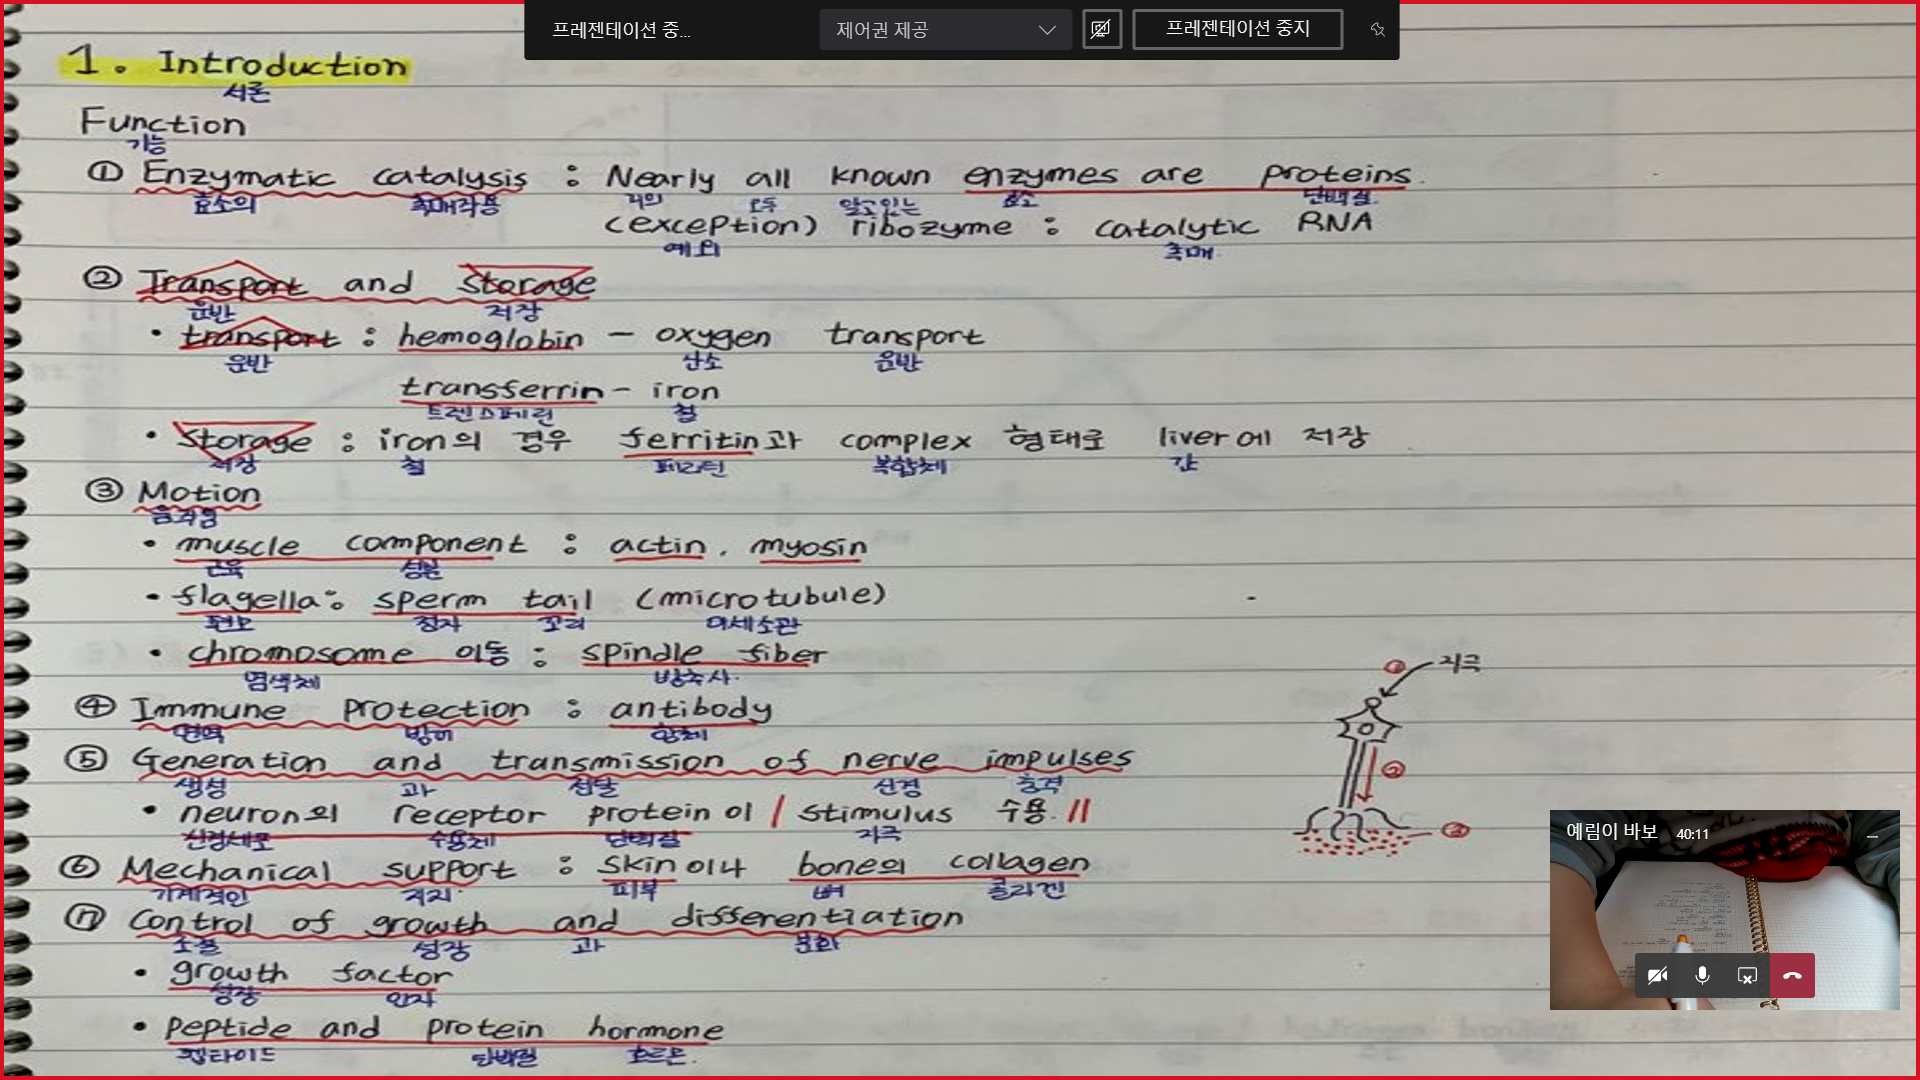 프레젠테이션 중...
제어권 제공
프레젠테이션 중지
1. Introduction
서론
Function
기능
① Enzymatic catalysis : Nearly all known enzymes are proteins.
효소의 촉매작용 거의 모두 알고있는 효소 단백질.
(exception) ribozyme : catalytic RNA
예외 촉매.
② Transport and Storage
운반 저장
• transport : hemoglobin - oxygen transport
운반 산소 운반
transferrin - iron
트렌스페린 철
• Storage : iron의 경우 ferritin과 complex 형태로 liver에 저장
저장 철 페리틴 복합체 간
③ Motion
움직임
• muscle component : actin, myosin
근육 성분
• flagella : sperm tail (microtubule)
편모 정자 꼬리 미세소관
• chromosome 이동 : spindle fiber
염색체 방추사.
④ Immune Protection : antibody
면역 방어 항체
⑤ Generation and transmission of nerve impulses
생성 과 전달 신경 충격
• neuron의 receptor protein이 / stimulus 수용. //
신경세포 수용체 단백질 자극
⑥ Mechanical support : skin이나 bone의 collagen
기계적인 지지 피부 뼈 콜라겐
⑦ Control of growth and differentiation
조절 성장 과 분화
• growth factor
성장 인자
• peptide and protein hormone
펩타이드 단백질 호르몬.
① 자극
②
③
예림이 바보 40:11